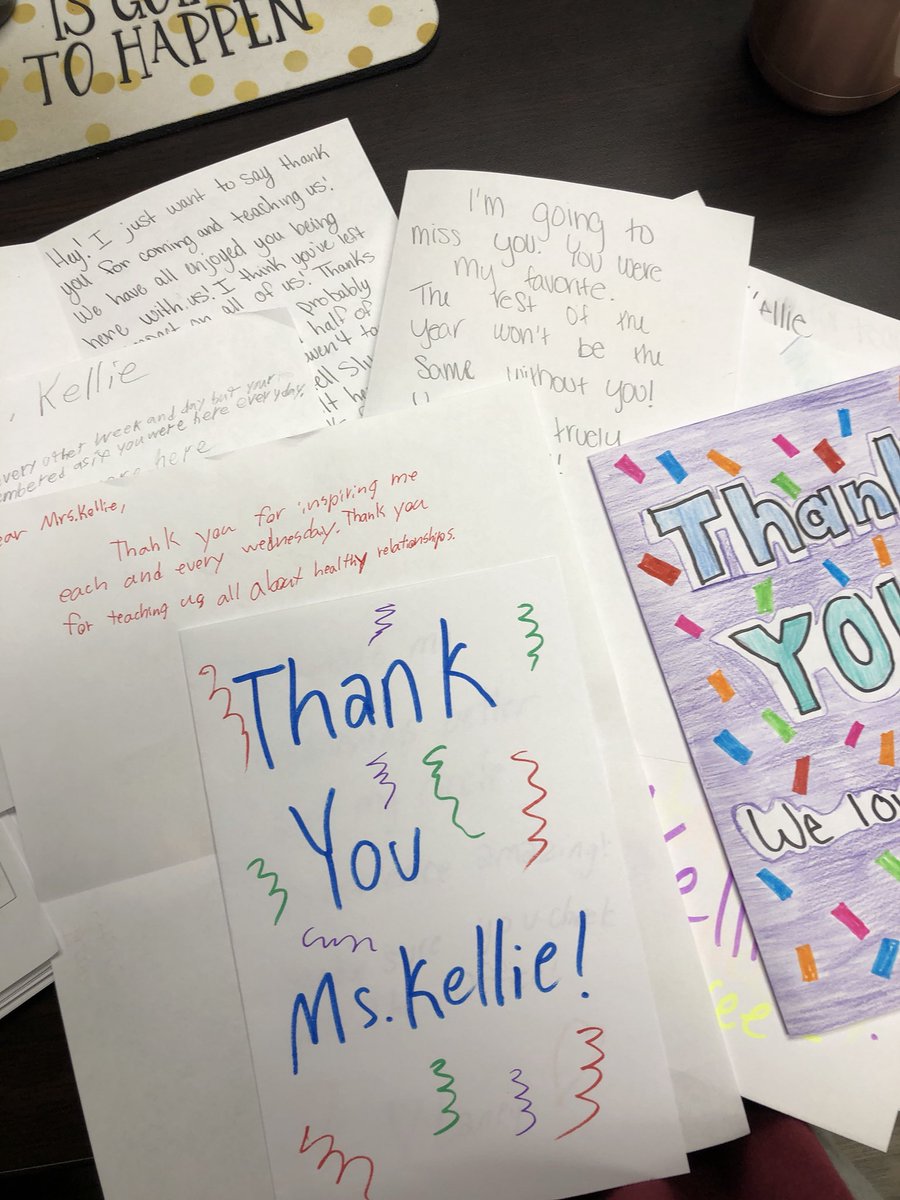 IS GO
TO HAPPEN
Hey! I just want to say thank
you for coming and teaching us!
We have all enjoyed you being
here with us! I think you've left
on all of us. Thanks
probably
half of
I'm going to
miss you! You were
my favorite.
The rest of the
year won't be the
same without you!
truely
Kellie
, Kellie
every other week and day but your
as if you were here everyday.
here
Mrs.Kellie,
Thank you for inspiring me
each and every wednesday. Thank you
for teaching us all about healthy relationships.
Thank
You
Ms.Kellie!
Thank
YOU
We lov